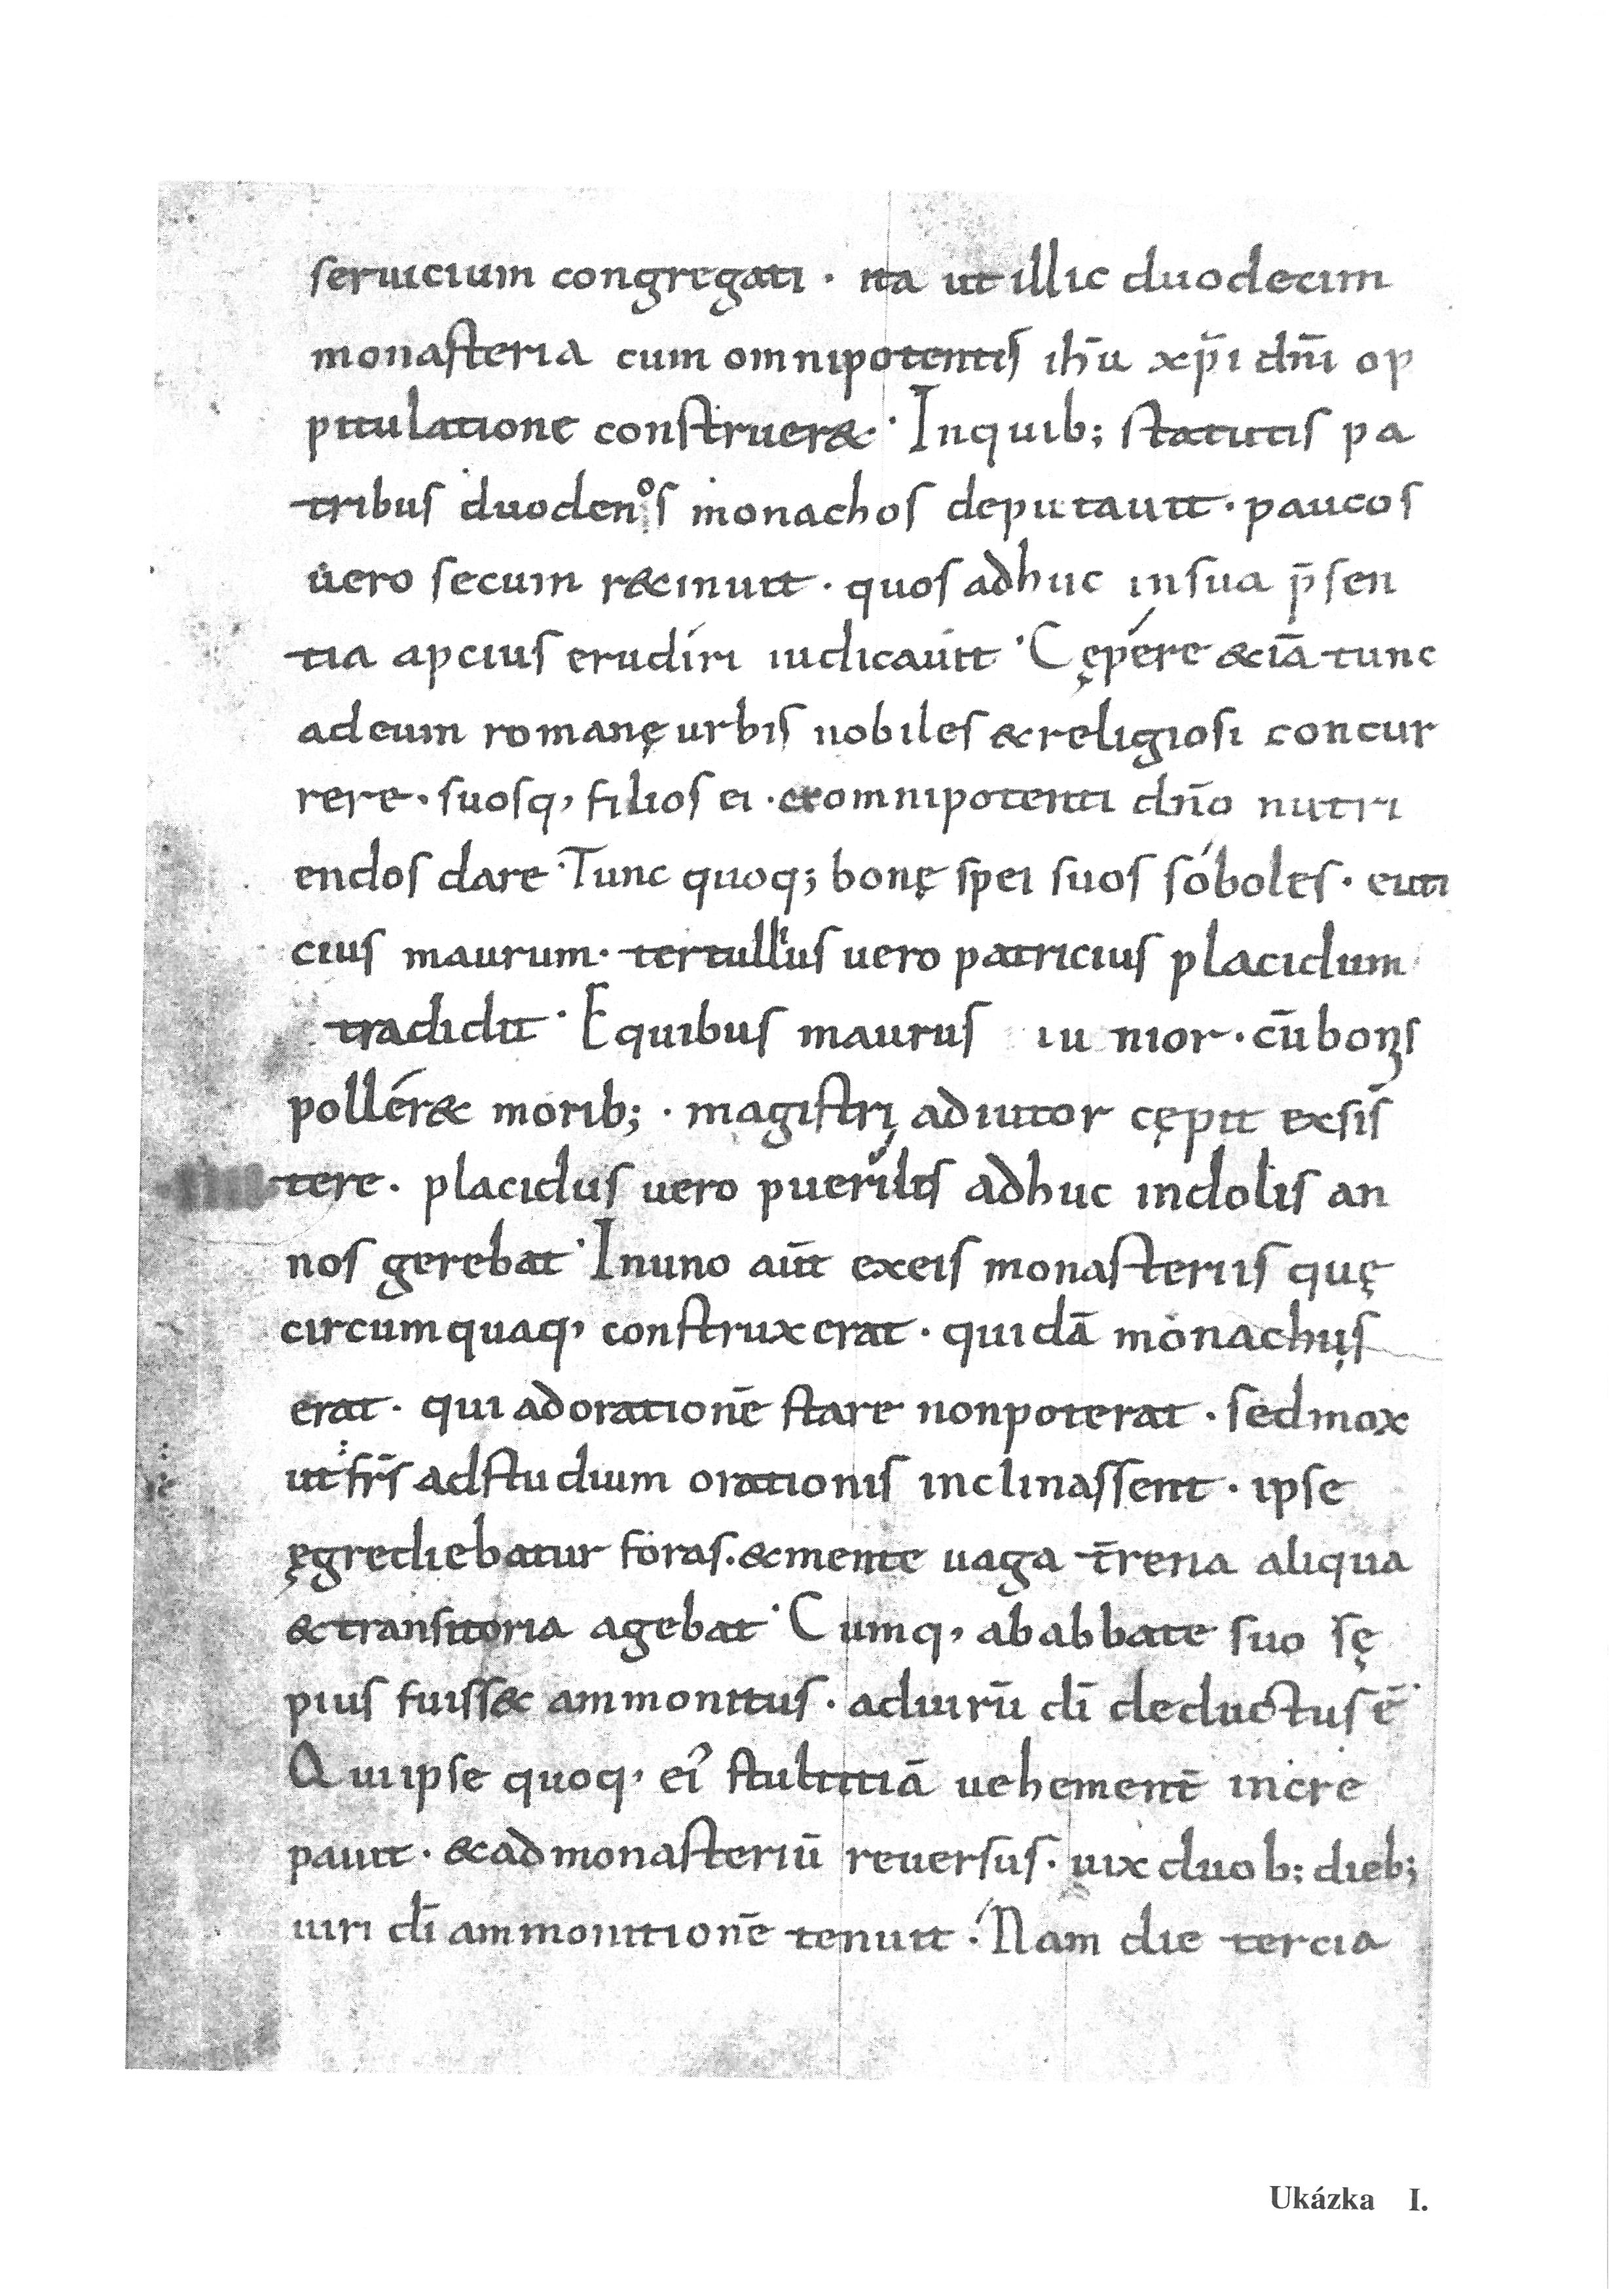 seruicium congregati · ita ut illic duodecim
monasteria cum omnipotentis ih̄u xp̄i dn̄i op
pitulatione construer& · Inquib; statutis pa
tribus duodenos monachos deputauit · paucos
uero secum r&inuit · quos adhuc insua p̄sen
tia apcius erudíri iudicauit · Cępére &iā tunc
adeum romanę urbis nobiles &religiosi concur
rere · suosq, filios ei · et omnipotenti dn̄o nutri
endos dare · Tunc quoq; bonę spei suos sóboles · euti
cius maurum · tertullius uero patricius placidum
tradidit · Equibus maurus iunior · cū bonis
pollér& morib; · magistri adiutor cępit exsis
tere · placidus uero puerilis adhuc indolis an
nos gerebat · Inuno aūt exeis monasteriis quę
circumquaq, construxerat · quidā monachus
erat · qui adorationē stare nonpoterat · sed mox
ut fr̄s adstudium orationis inclinassent · ipse
ęgrediebatur foras · &mente uaga t̄rena aliqua
&transitoria agebat · Cumq, ababbate suo sę
pius fuiss& ammonitus · aduirū dī deductus ē ·
Qui ipse quoq, ei᾽ stultitiā uehement̄ incre
pauit · &admonasteriū reuersus · uix duob; dieb;
uiri dī ammonitionē tenuit · Nam die tercia
Ukázka I.